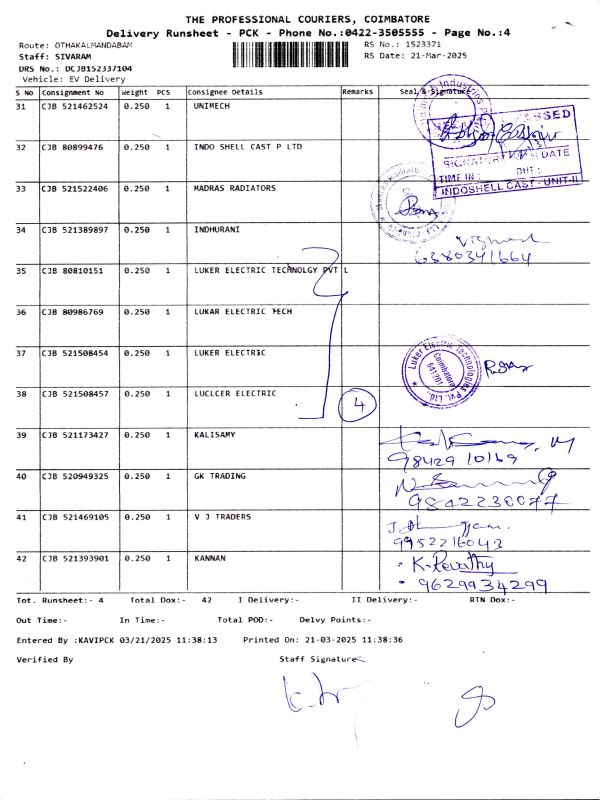 THE PROFESSIONAL COURIERS, COIMBATORE
Delivery Runsheet - PCK - Phone No.:0422-3505555 - Page No.:4
Route: OTHAKALMANDABAM
RS No.: 1523371
Staff: SIVARAM
RS Date: 21-Mar-2025
DRS No.: DCJB152337104
Vehicle: EV Delivery
S NO Consignment No Weight PCS Consignee Details Remarks Seal & Signature
31 CJB 521462524 0.250 1 UNIMECH
32 CJB 80899476 0.250 1 INDO SHELL CAST P LTD
SIGNATORY DATE
TIME IN : OUT :
INDOSHELL CAST - UNIT-II
33 CJB 521522406 0.250 1 MADRAS RADIATORS
34 CJB 521389897 0.250 1 INDHURANI
6380341664
35 CJB 80810151 0.250 1 LUKER ELECTRIC TECHNOLGY PVT L
36 CJB 80986769 0.250 1 LUKAR ELECTRIC TECH
37 CJB 521508454 0.250 1 LUKER ELECTRIC
Luker Electric Technologies Pvt. Ltd.,
Coimbatore
641201
38 CJB 521508457 0.250 1 LUCLCER ELECTRIC
4
39 CJB 521173427 0.250 1 KALISAMY
9842910169
40 CJB 520949325 0.250 1 GK TRADING
9842230077
41 CJB 521469105 0.250 1 V J TRADERS
9952216043
42 CJB 521393901 0.250 1 KANNAN
K-Revathy
9629934299
Tot. Runsheet:- 4 Total Dox:- 42 I Delivery:- II Delivery:- RTN Dox:-
Out Time:- In Time:- Total POD:- Delvy Points:-
Entered By :KAVIPCK 03/21/2025 11:38:13 Printed On: 21-03-2025 11:38:36
Verified By Staff Signature